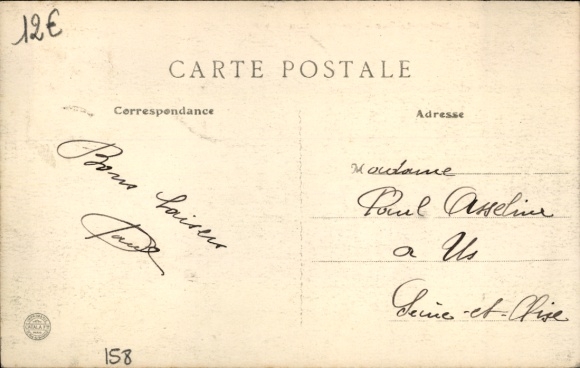 12€
CARTE POSTALE
Correspondance
Adresse
Bons baisers
Paul
Madame
Paul Asseline
a Us
Seine-et-Oise
158